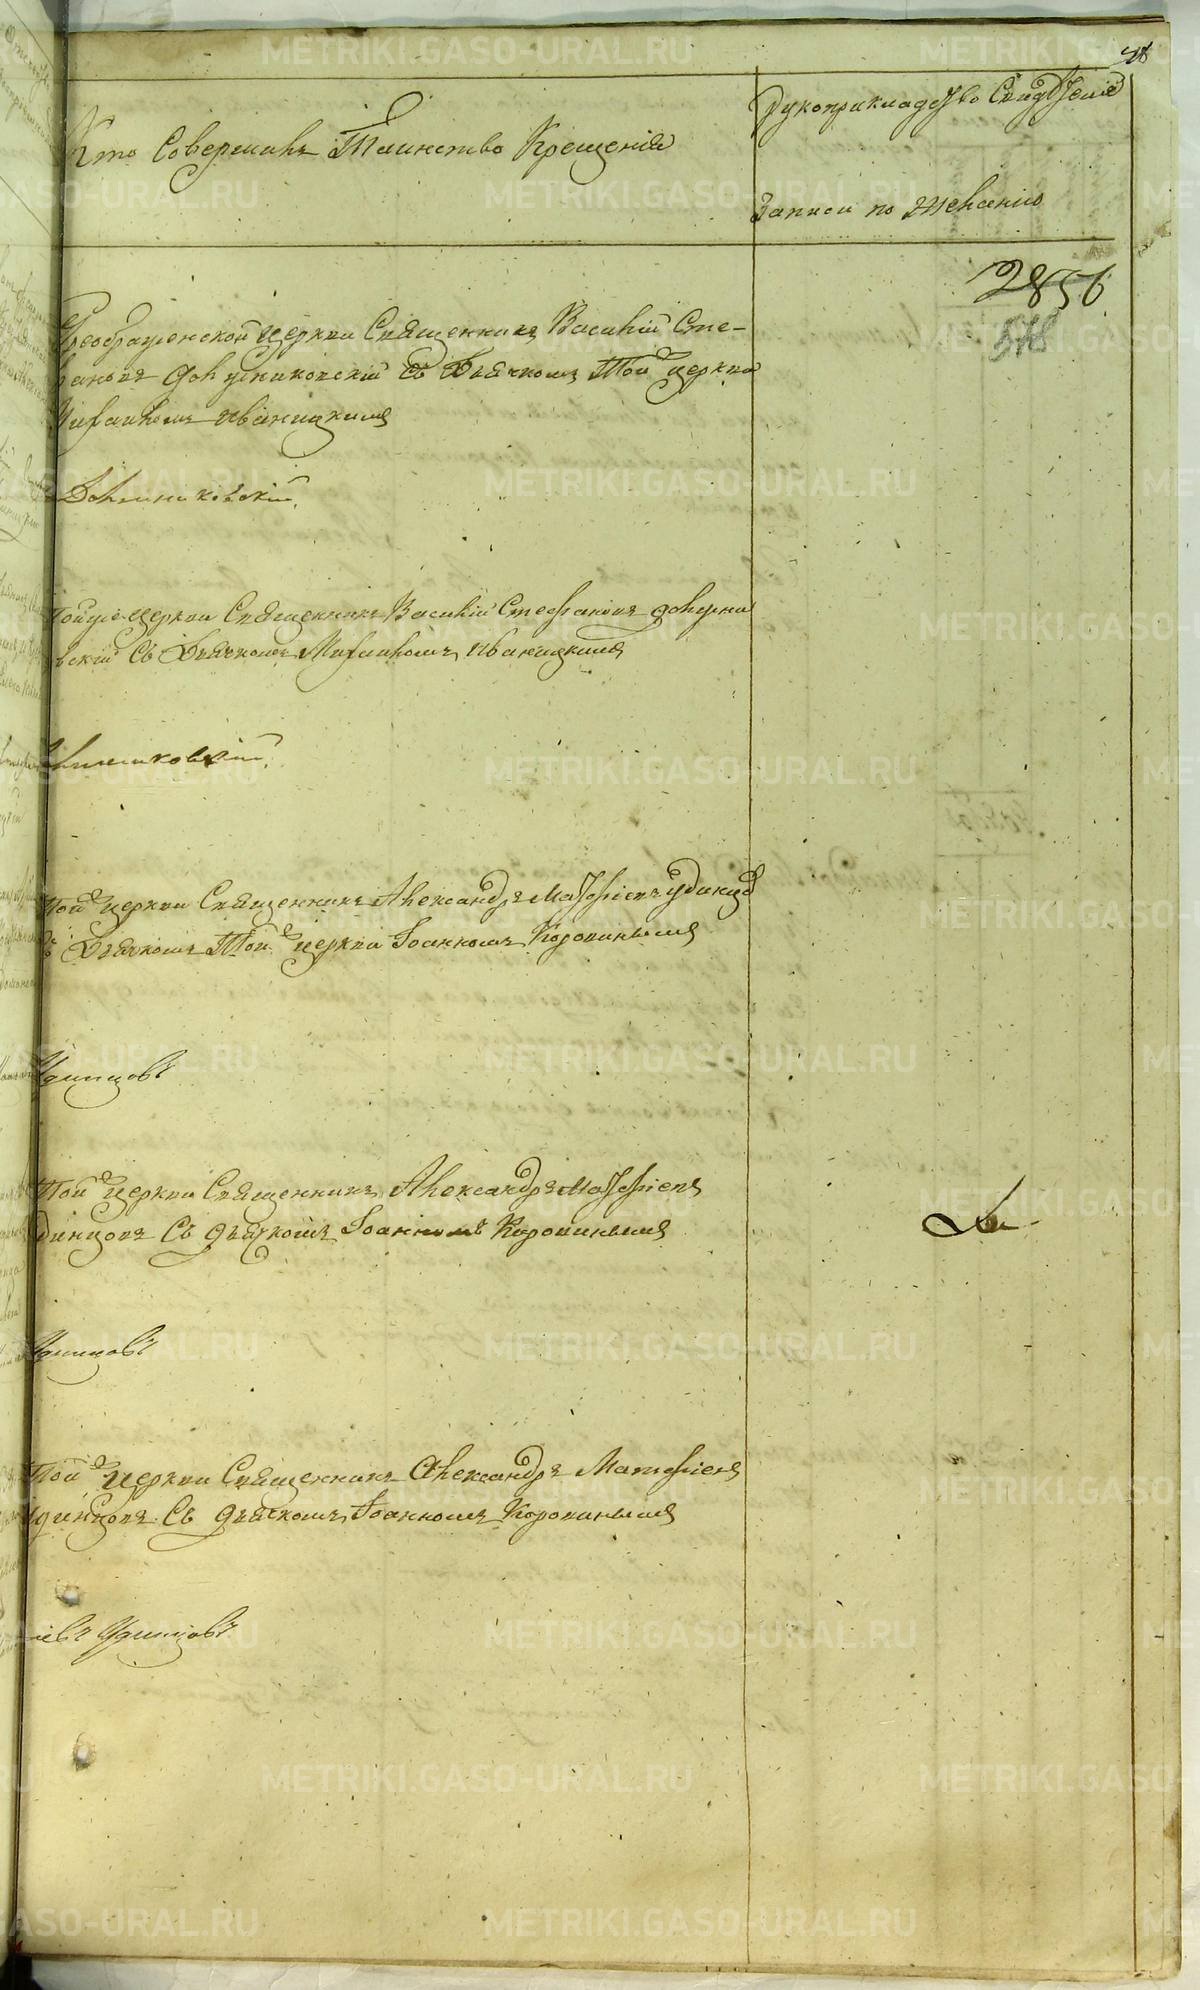 Кто Совершилъ Таинство Крещенія
Рукоприкладство Свидѣтелей
Записи по Желанію
2856
Преображенской церкви Священникъ Василій Сте-
фановъ с Дьячкомъ Той же церкви
Михаиломъ Иваницкимъ
Тойже церкви Священникъ Василій Стефановъ
вскій Съ Дьячкомъ Михаиломъ Иваницкимъ
Той же церкви Священникъ Александръ Матфіевъ Удинцов
Съ Дьячкомъ Той же церкви Іоанномъ Коровинымъ
Удинцовъ
Той же церкви Священникъ Александръ Матфіевъ
Удинцовъ Съ дьячкомъ Іоанномъ Коровинымъ
Удинцовъ
Той же церкви Священникъ Александръ Матфіевъ
Удинцовъ Съ дьячкомъ Іоанномъ Коровинымъ
іевъ Удинцовъ
METRIKI.GASO-URAL.RU